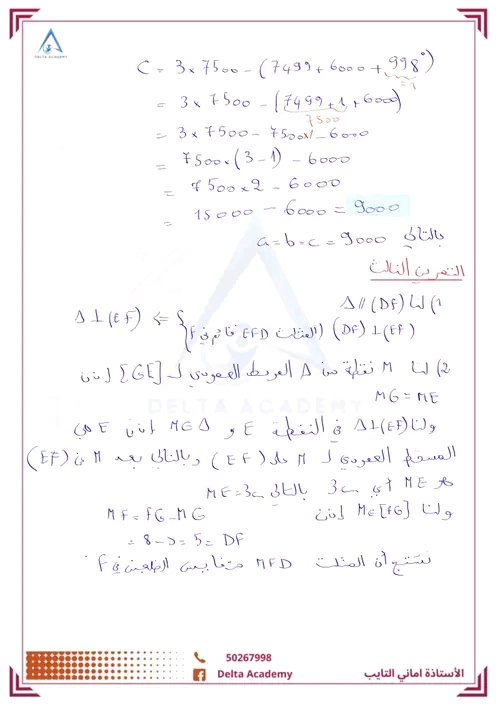 DELTA ACADEMY
C = 3 × 7500 - (7499 + 6000 + 998°)
= 1
= 3 × 7500 - (7499 + 1 + 6000)
7500
= 3 × 7500 - 7500×1 - 6000
= 7500 × (3 - 1) - 6000
= 7500 × 2 - 6000
= 15000 - 6000 = 9000
بالتالي a = b = c = 9000
التمرين الثالث
1) لنا Δ // (DF)
(DF) ⊥ (EF) (المثلث EFD قائم في F) } ⇒ Δ ⊥ (EF)
2) لنا M نقطة من Δ الموسط العمودي لـ [GE] إذن
MG = ME
DELTA ACADEMY
ولنا Δ ⊥ (EF) في النقطة E و M ∈ Δ إذن E هي
المسقط العمودي لـ M على (EF) وبالتالي بعد M عن (EF)
هو ME أي 3 بالتالي ME = 3
ولنا M ∈ [FG] إذن MF = FG - MG
= 8 - 3 = 5 = DF
نستنتج أن المثلث MFD متقايس الضلعين في F.
50267998
Delta Academy
الأستاذة اماني التايب